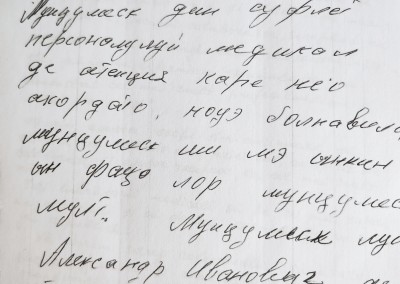 Мунцумеск дин суфлет
персоналулуй медикал
де атенция каре не'о
акордато, ноуэ болнавил
мунцумеск ши мэ ынкин
ын фаца лор мунцумес
мулт. Мунцумеск луй
Александр Иванович